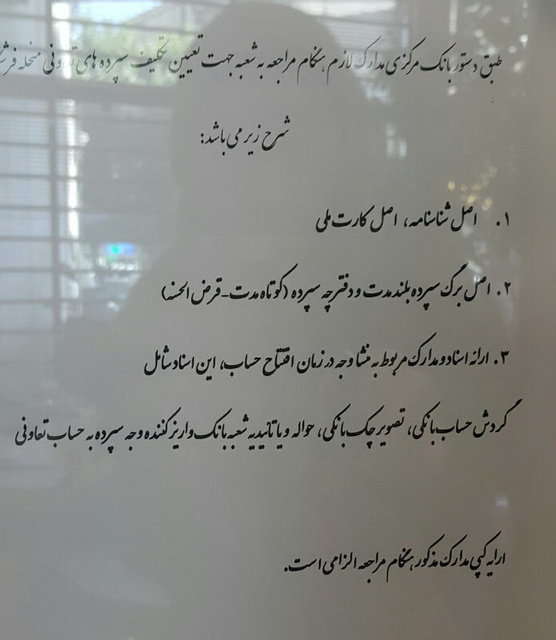 طبق دستور بانک مرکزی مدارک لازم هنگام مراجعه به شعبه جهت تعیین تکلیف سپرده های تعاونی منحله فرشت
شرح زیر می باشد:
۱. اصل شناسنامه، اصل کارت ملی
۲. اصل برگ سپرده بلند مدت و دفترچه سپرده (کوتاه مدت-قرض الحسنه)
۳. ارائه اسناد و مدارک مربوط به منشا وجه در زمان افتتاح حساب، این اسناد شامل
گردش حساب بانکی، تصویر چک بانکی، حواله و یا تائیدیه شعبه بانک واریز کننده وجه سپرده به حساب تعاونی
ارایه کپی مدارک مذکور هنگام مراجعه الزامی است.